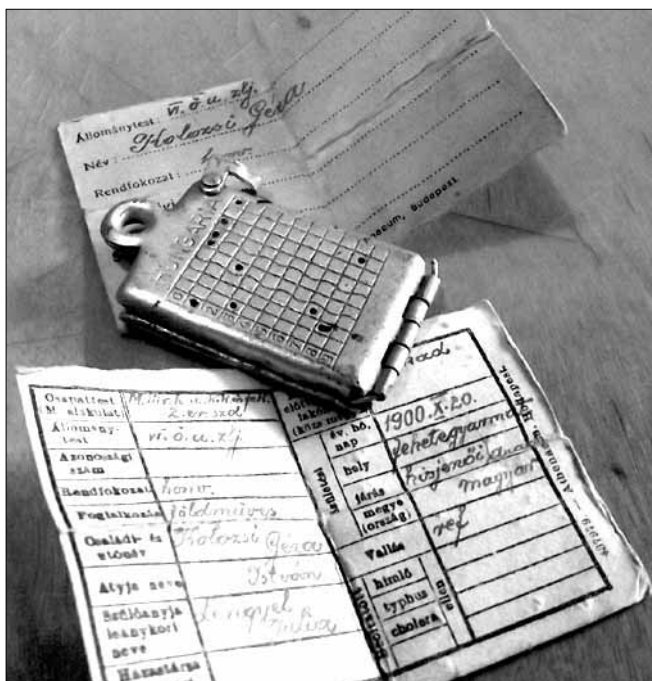 Állománytest: VI. ö. u. zlj.
Név: Kolozsi Géza
Rendfokozat: honv.
Budapest.
HUNGARIA
0 1 2 3 4 5 6 7 8 9
Csapattest
M. alakulat
2. er. szd
Állomány-
test VI. ö. u. zlj
Azonossági
szám
Rendfokozat honv.
Foglalkozás földműves
Családi- és
utónév Kolozsi Géza
Atyja neve István
Szülőanyja
leánykori
neve Lengyel Julia
Házastársa
rad
születési
év, hó,
nap 1900. X. 20.
hely
járás kisjenői
megye
(ország) magyar
Vallás ref
himlő
typhus
cholera
ellen
Athenaeum, Budapest.